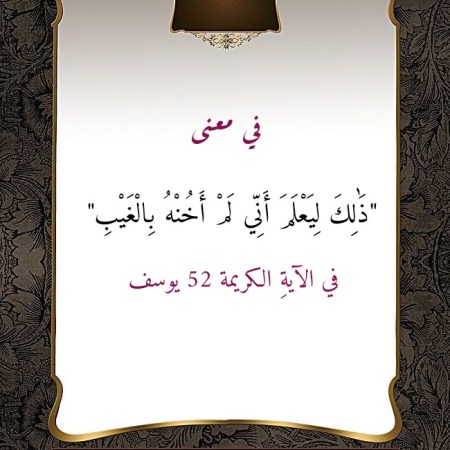 في معنى
"ذَٰلِكَ لِيَعْلَمَ أَنِّي لَمْ أَخُنْهُ بِالْغَيْبِ"
في الآيةِ الكريمة 52 يوسف